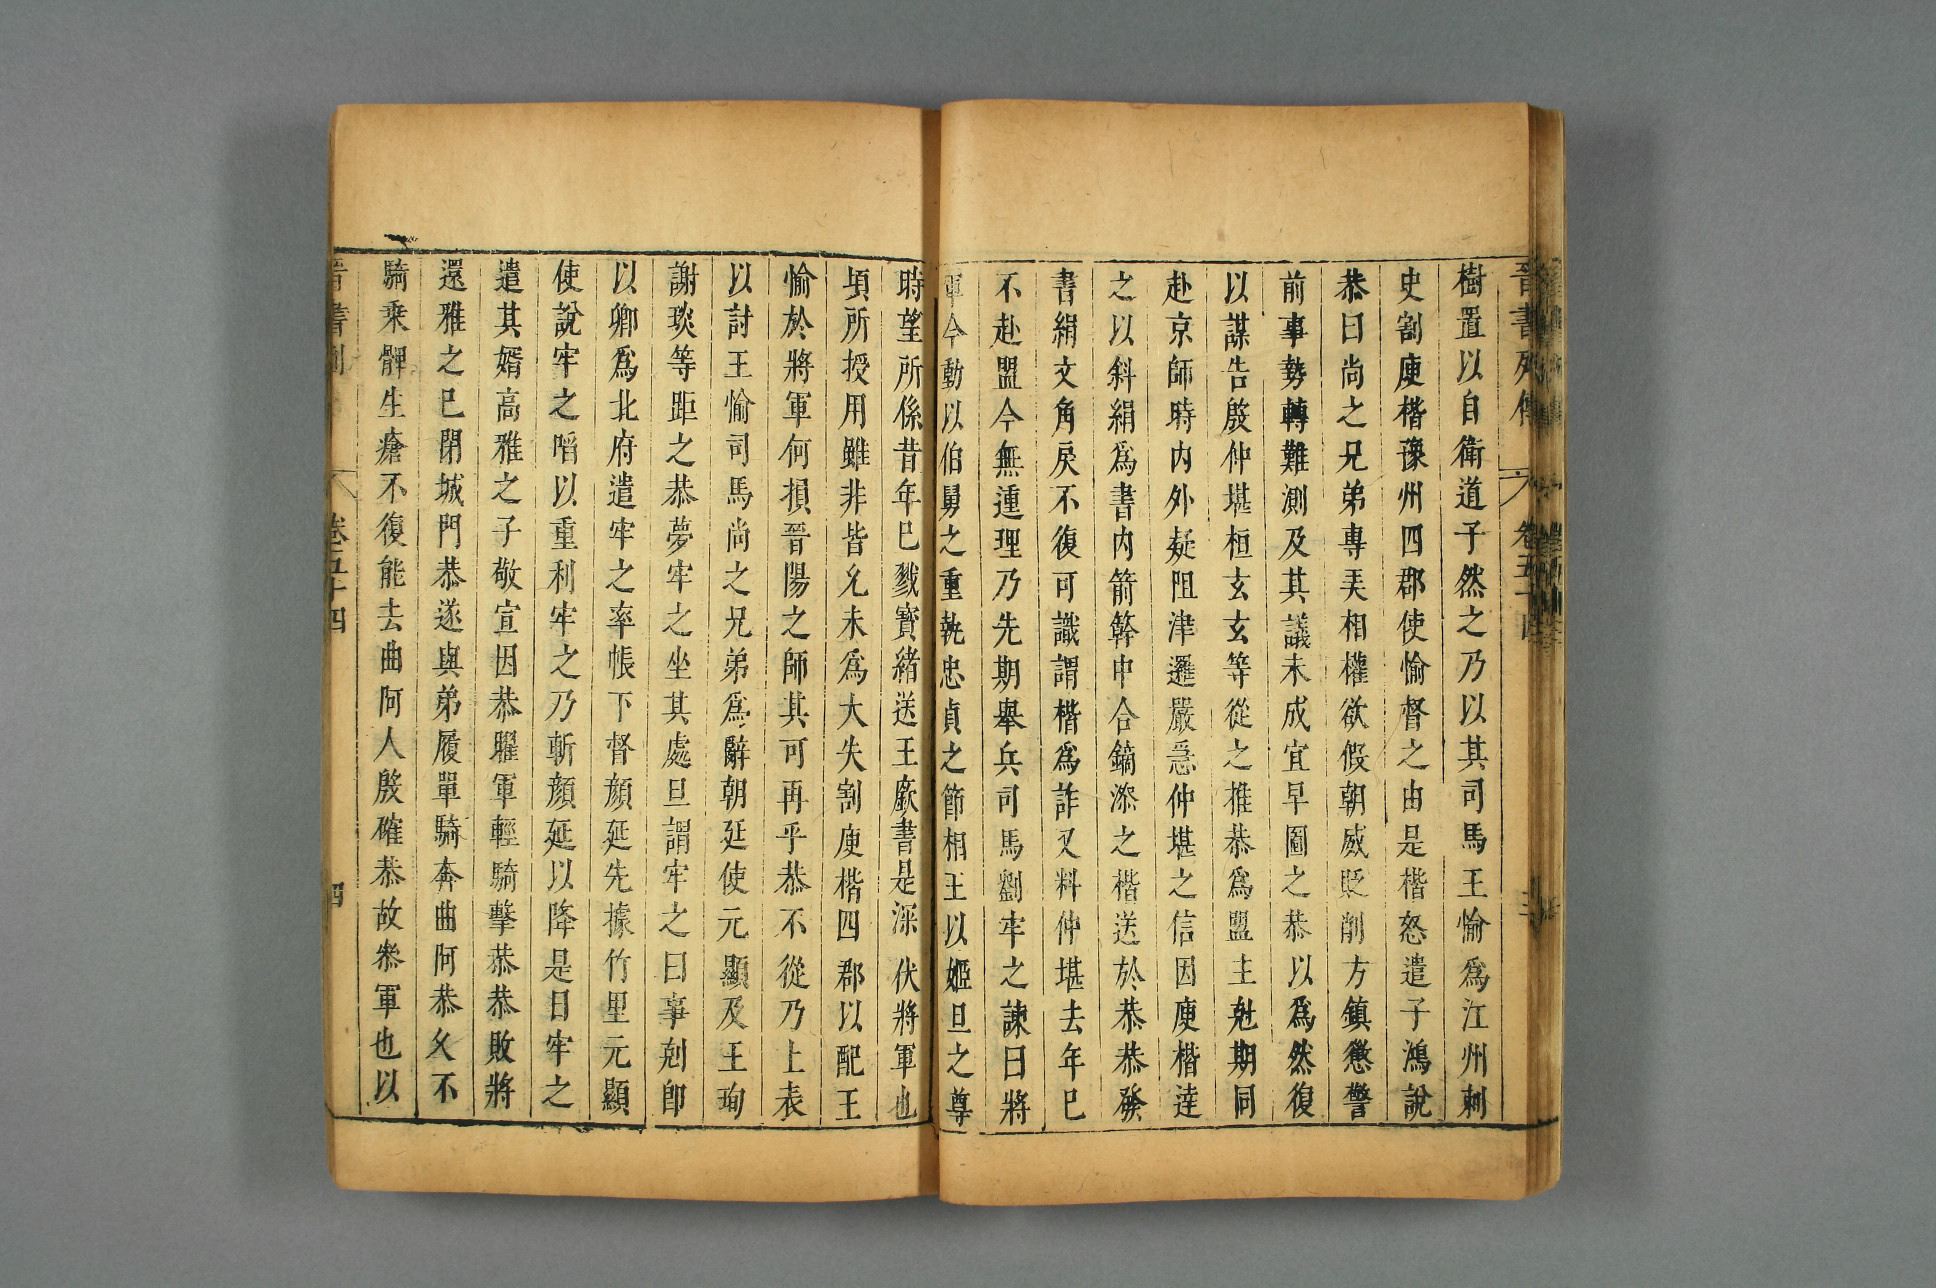 晉書列傳 卷五十四 三
樹置以自衛道子然之乃以其司馬王愉爲江州刺
史割庾楷豫州四郡使愉督之由是楷怒遣子鴻說
恭曰尚之兄弟專弄相權欲假朝威貶削方鎮懲警
前事勢轉難測及其議未成宜早圖之恭以爲然復
以謀告殷仲堪桓玄玄等從之推恭爲盟主剋期同
赴京師時内外疑阻津邏嚴急仲堪之信因庾楷達
之以斜絹爲書内箭簳中合鏑漆之楷送於恭恭發
書絹文角戾不復可識謂楷爲詐又料仲堪去年已
不赴盟今無連理乃先期舉兵司馬劉牢之諫曰將
軍今動以伯舅之重執忠貞之節相王以姬旦之尊
時望所係昔年已戮寶緒送王廞書是深伏將軍也
頃所授用雖非皆允未爲大失割庾楷四郡以配王
愉於將軍何損晉陽之師其可再乎恭不從乃上表
以討王愉司馬尚之兄弟爲辭朝廷使元顯及王珣
謝琰等距之恭夢牢之坐其處旦謂牢之曰事剋即
以卿爲北府遣牢之率帳下督顔延先據竹里元顯
使說牢之啗以重利牢之乃斬顔延以降是日牢之
遣其婿高雅之子敬宣因恭曜軍輕騎擊恭恭敗將
還雅之已閉城門恭遂與弟履單騎奔曲阿恭久不
騎乘髀生瘡不復能去曲阿人殷確恭故叅軍也以
晉書列 卷五十四 四